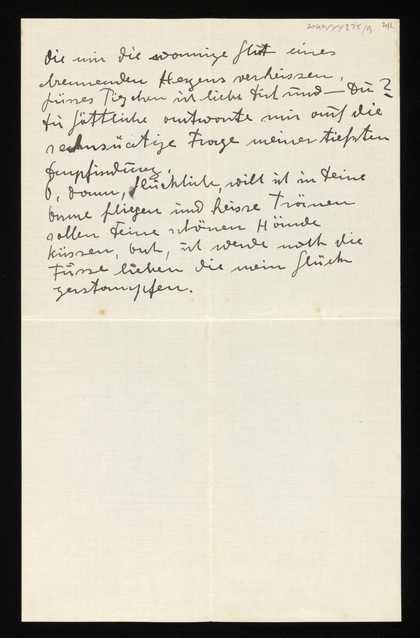 die mir die wonnige Glut eines
brennenden Herzens verheissen,
süsses ich liebe Dich und – Du?
Du göttliche antworte mir auf die
sehnsüchtige Frage meiner tiefsten
Empfindung,
O, dann, glückliche, will ich in Deine
Arme fliegen und heisse Tränen
sollen Deine schönen Hände
küssen, ach, ich werde noch die
Füsse lieben die mein Glück
zerstampfen.